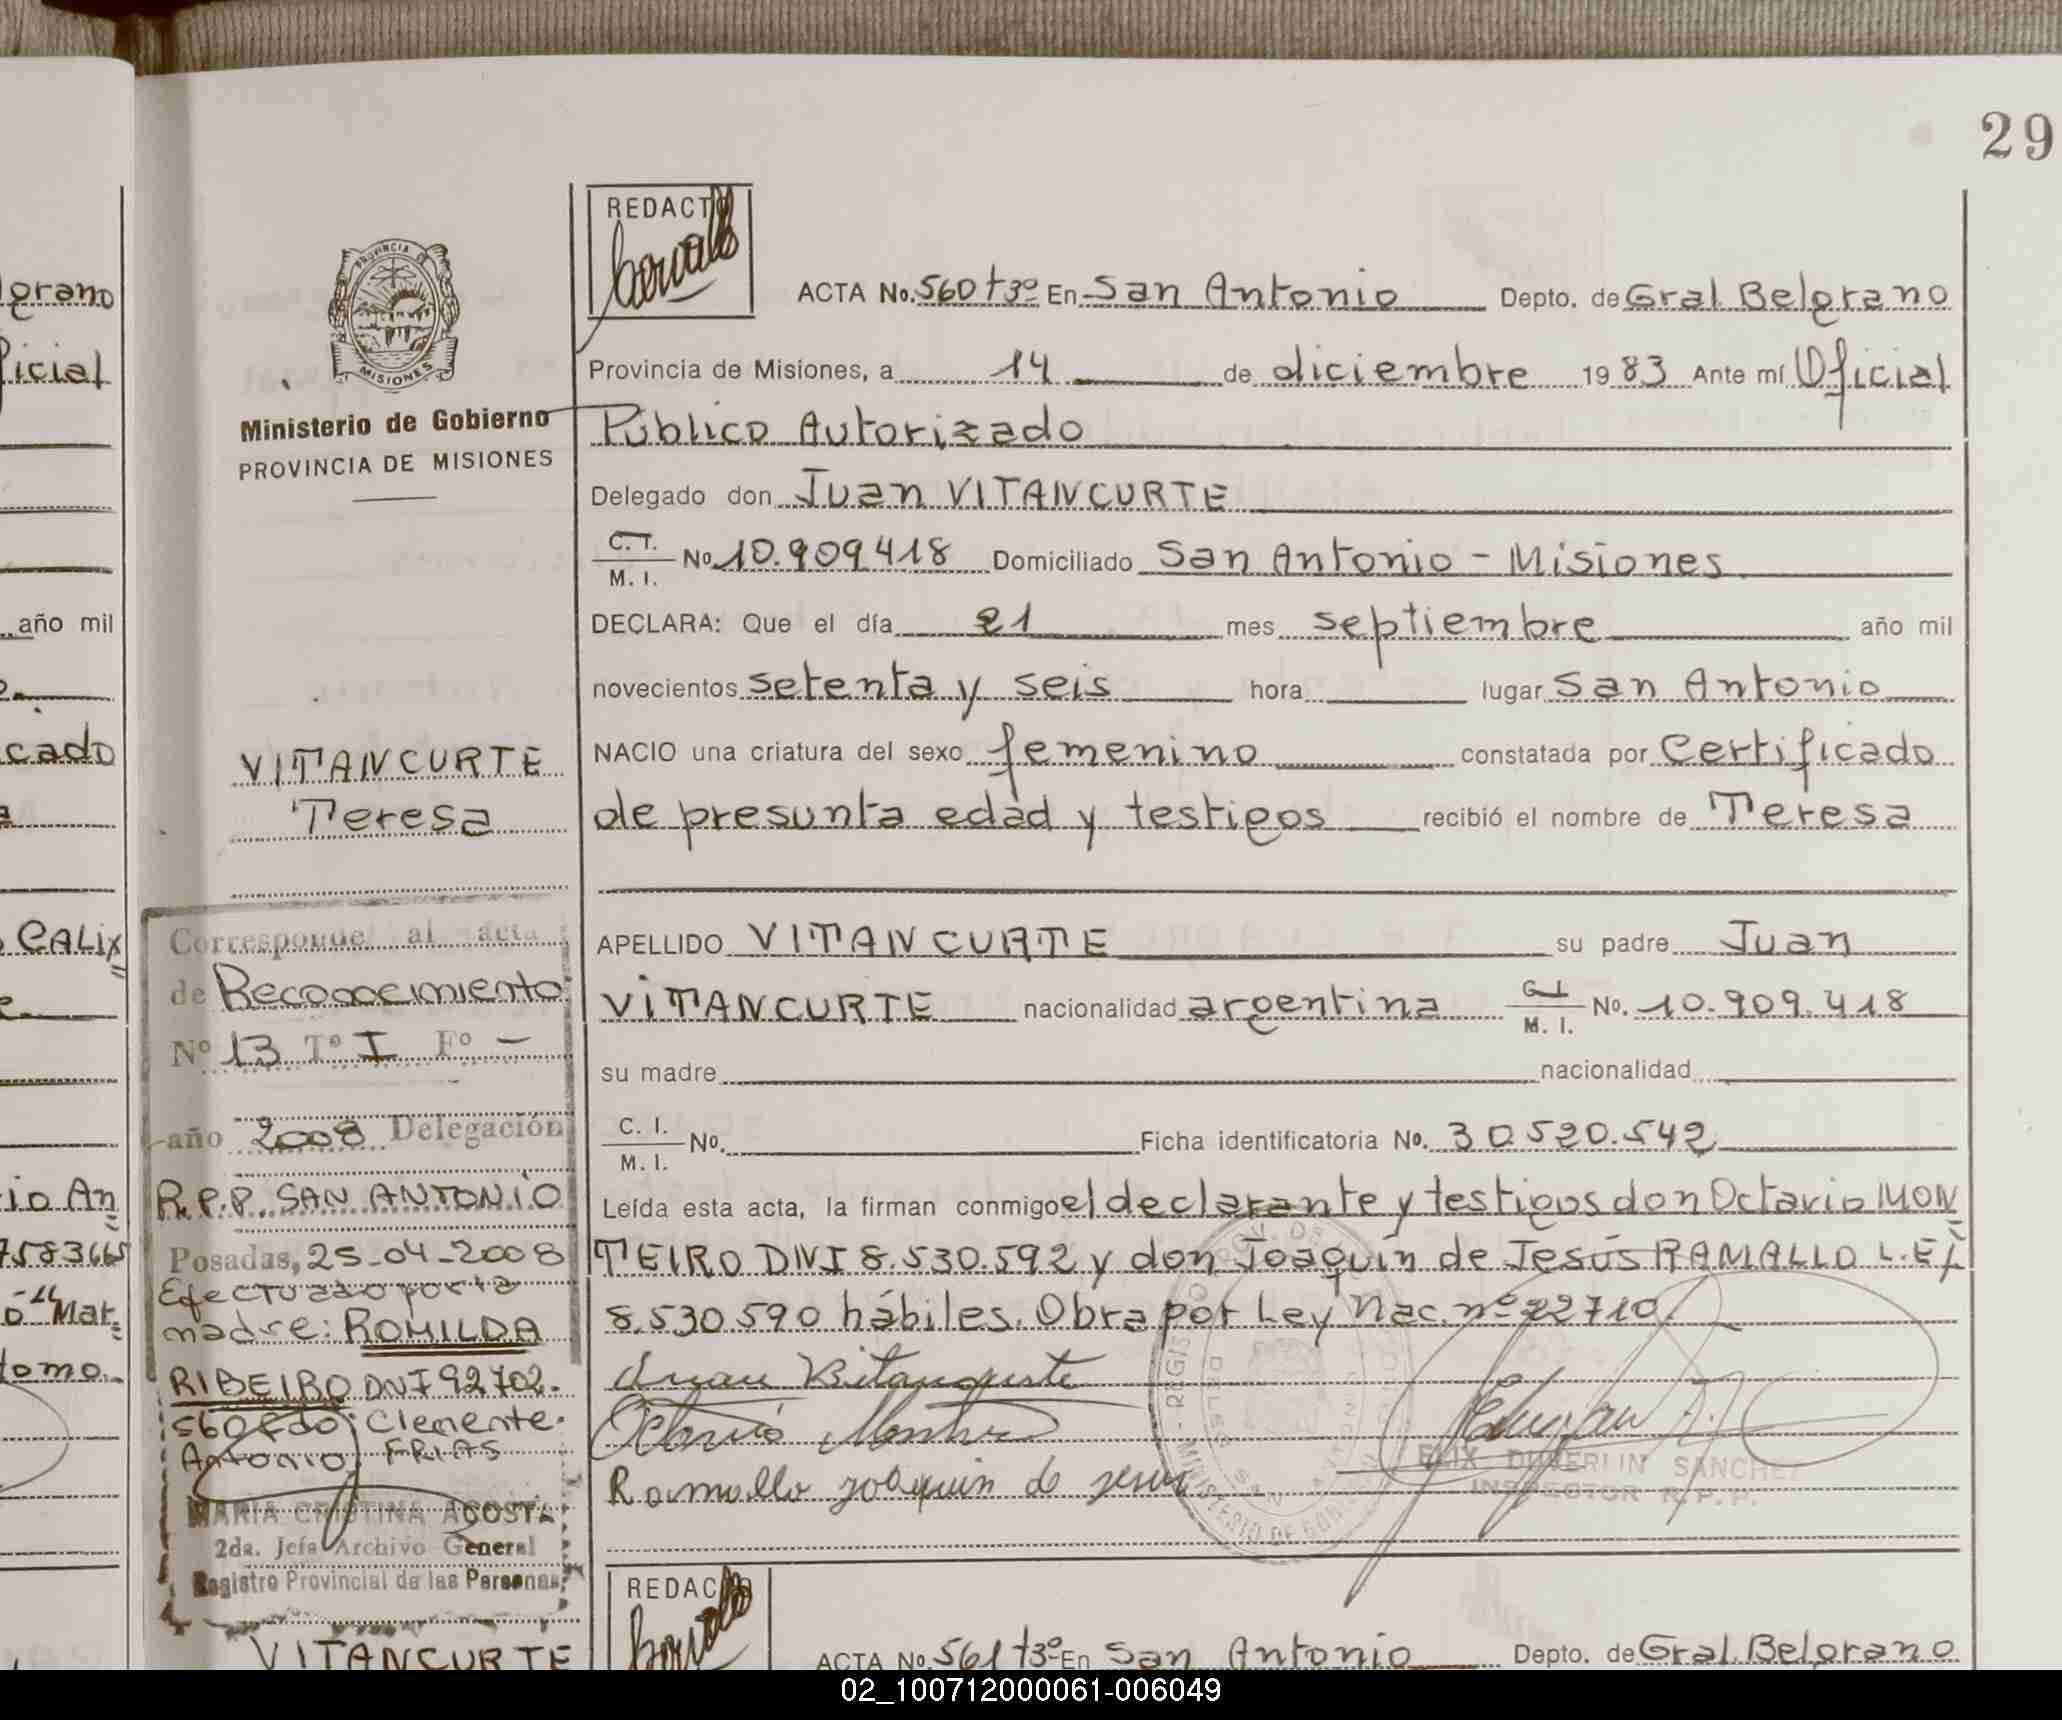 29
REDACTÓ
PROVINCIA DE
MISIONES
Ministerio de Gobierno
PROVINCIA DE MISIONES
ACTA No. 560 t3º En San Antonio Depto. de Gral Belgrano
Provincia de Misiones, a 14 de diciembre 1983 Ante mí Oficial
Público Autorizado
Delegado don Juan VITANCURTE
C. I. M. I. No 10.909.418 Domiciliado San Antonio - Misiones
DECLARA: Que el día 21 mes septiembre año mil
novecientos setenta y seis hora lugar San Antonio
NACIO una criatura del sexo femenino constatada por Certificado
de presunta edad y testigos recibió el nombre de Teresa
APELLIDO VITANCURTE su padre Juan
VITANCURTE nacionalidad argentina C. I. M. I. No. 10.909.418
su madre nacionalidad
C. I. M. I. No. Ficha identificatoria No. 30.520.542
Leída esta acta, la firman conmigo el declarante y testigos don Octavio MON
TEIRO DNI 8.530.592 y don Joaquín de Jesús RAMALLO L.E.
8.530.590 hábiles. Obra por Ley Nac. nº 22710
Juan Vitancurte
Octavio
Ramallo joaquin de jesus
ELIX DUVERLIN SANCHEZ
INSPECTOR R.P.P.
MINISTERIO DE GOB
VITANCURTE
Teresa
Corresponde al acta
de Reconocimiento
Nº 13 Tº I Fº -
año 2008 Delegación
R.P.P. SAN ANTONIO
Posadas, 25-04-2008
Efectuado por la
madre: ROMILDA
RIBEIRO DNI 92702.
560 fdo: Clemente
Antonio FRIAS
MARIA CRISTINA ACOSTA
2da. Jefa Archivo General
Registro Provincial de las Personas
VITANCURTE
REDACTÓ
ACTA No. 561 t3º En San Antonio Depto. de Gral. Belgrano
grano
icial
año mil
cado
CALIX
io An
7583665
Mar
tomo.
02_100712000061-006049